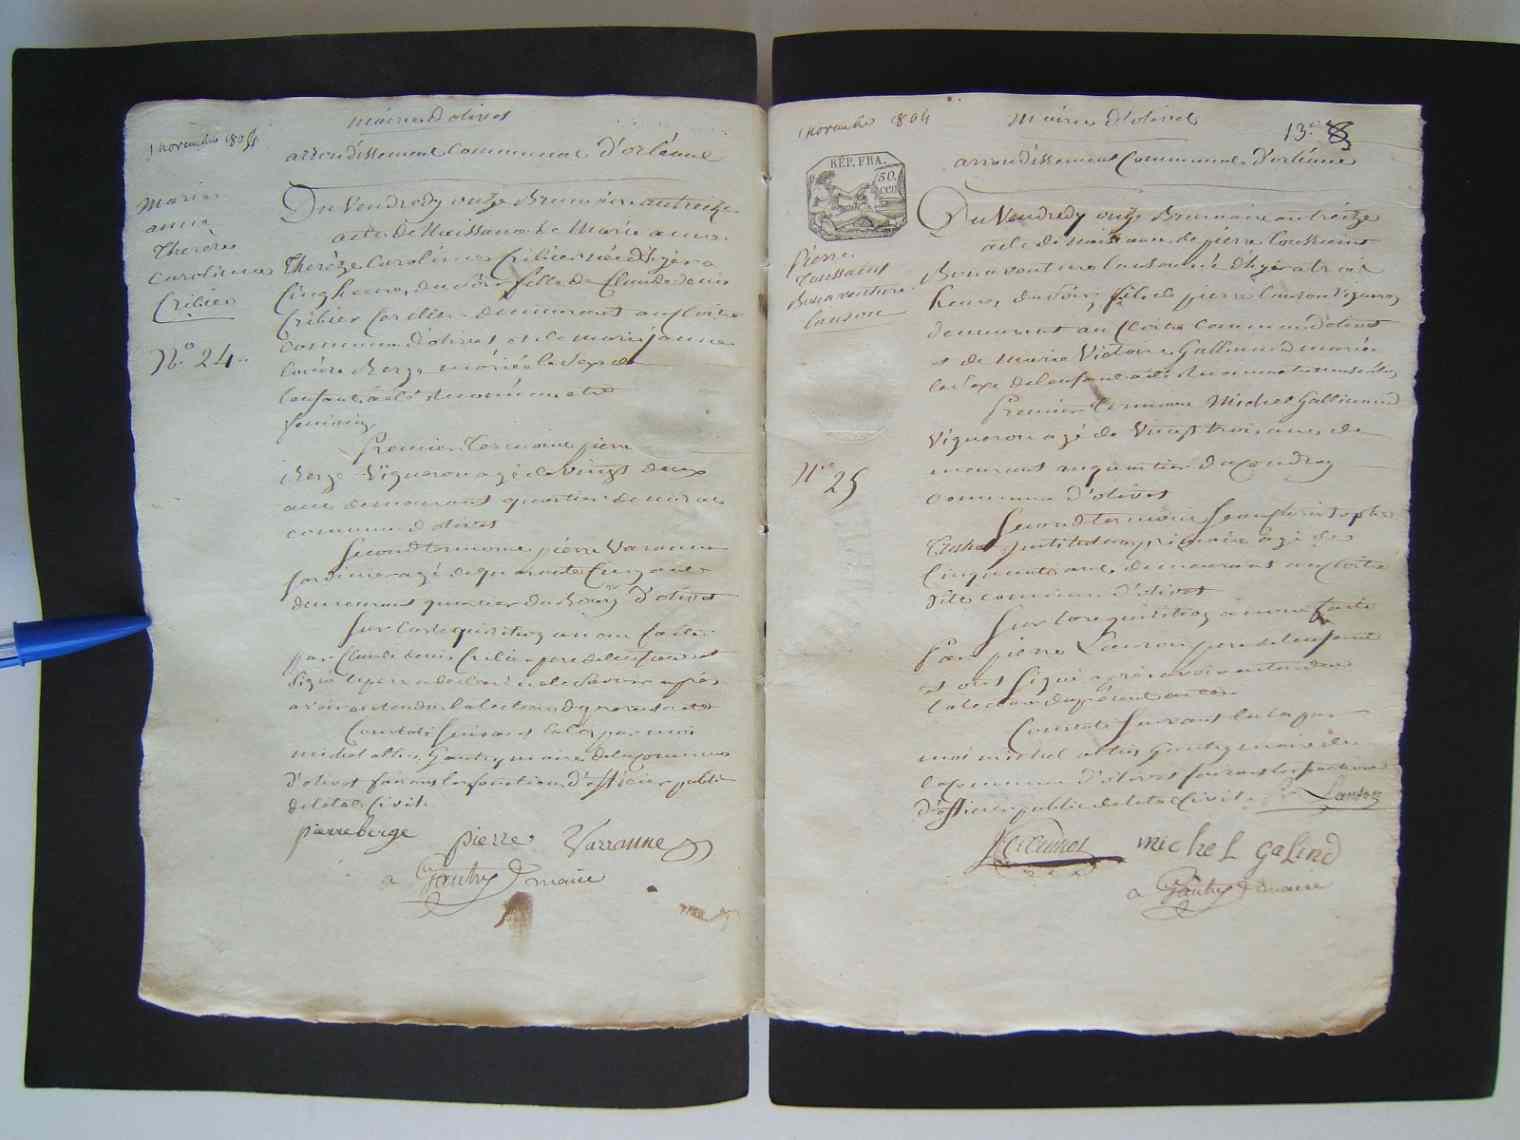 mairie d'olivet
1 novembre 1804
arrondissement Communal d'orléans
Marie
anne
Therèse
Caroline
Cribier
N.º 24.
Du Vendredy onze Brumaire an treize
acte de Naissance de Marie anne
Therèze Caroline Cribier née d'hyer a
Cinq heures du soir fille de Claude denis
Cribier demeurant au Cloitre
Commune d'olivet et de marie jeanne
Berge mariés le Sexe de
l'enfant a été reconnu etre
feminin
Premier temoin pierre
Berge Vigneron agé de vingt deux
ans demeurant quartier de
commune d'olivet
Second temoin pierre Varanne
jardinier agé de quarante Cinq ans
demeurant quartier du Bourg d'olivet
Sur la requisition a nous faite
par Claude denis Cribier pere de l'enfant et
signé le pere a declaré ne le Savoir après
avoir entendu la lecture du present acte
Constaté Suivant la loy par moi
michel alles Gautry maire de la commune
d'olivet faisant les fonctions d'officier public
de l'etat Civil.
pierre berge
pierre Varranne
a Gautry maire
1 novembre 1804
Mairie d'olivet
13.e
arrondissement Communal d'orléans
RÉP. FRA.
50.
cen
Pierre
Toussaint
Bonaventure
lauson
N.º 25
Du Vendredy onze Brumaire an treize
acte de Naissance de pierre Toussaint
Bonaventure lauson né d'hyer a trois
heures du soir, fils de pierre lauson Vigneron
demeurant au Cloitre Commune d'olivet
et de marie Victoire Gallimard mariés
le Sexe de l'enfant a été reconnu
Premier temoin Michel Gallimard
Vigneron agé de Vingt trois ans de
meurant au quartier du Coudray
commune d'olivet
Second temoin Jean Christophe
instituteur primaire agé de
Cinquante ans demeurant au Cloitre
dite commune d'olivet
Sur la requisition a nous faite
Par pierre Lauson pere de l'enfant
et ont signé après avoir entendu
la lecture du présent acte
Constaté Suivant la loy par
moi michel alles Gautry maire de
la commune d'olivet faisant les fonctions
d'officier public de l'etat Civil.
Lauson
michel galind
a Gautry maire